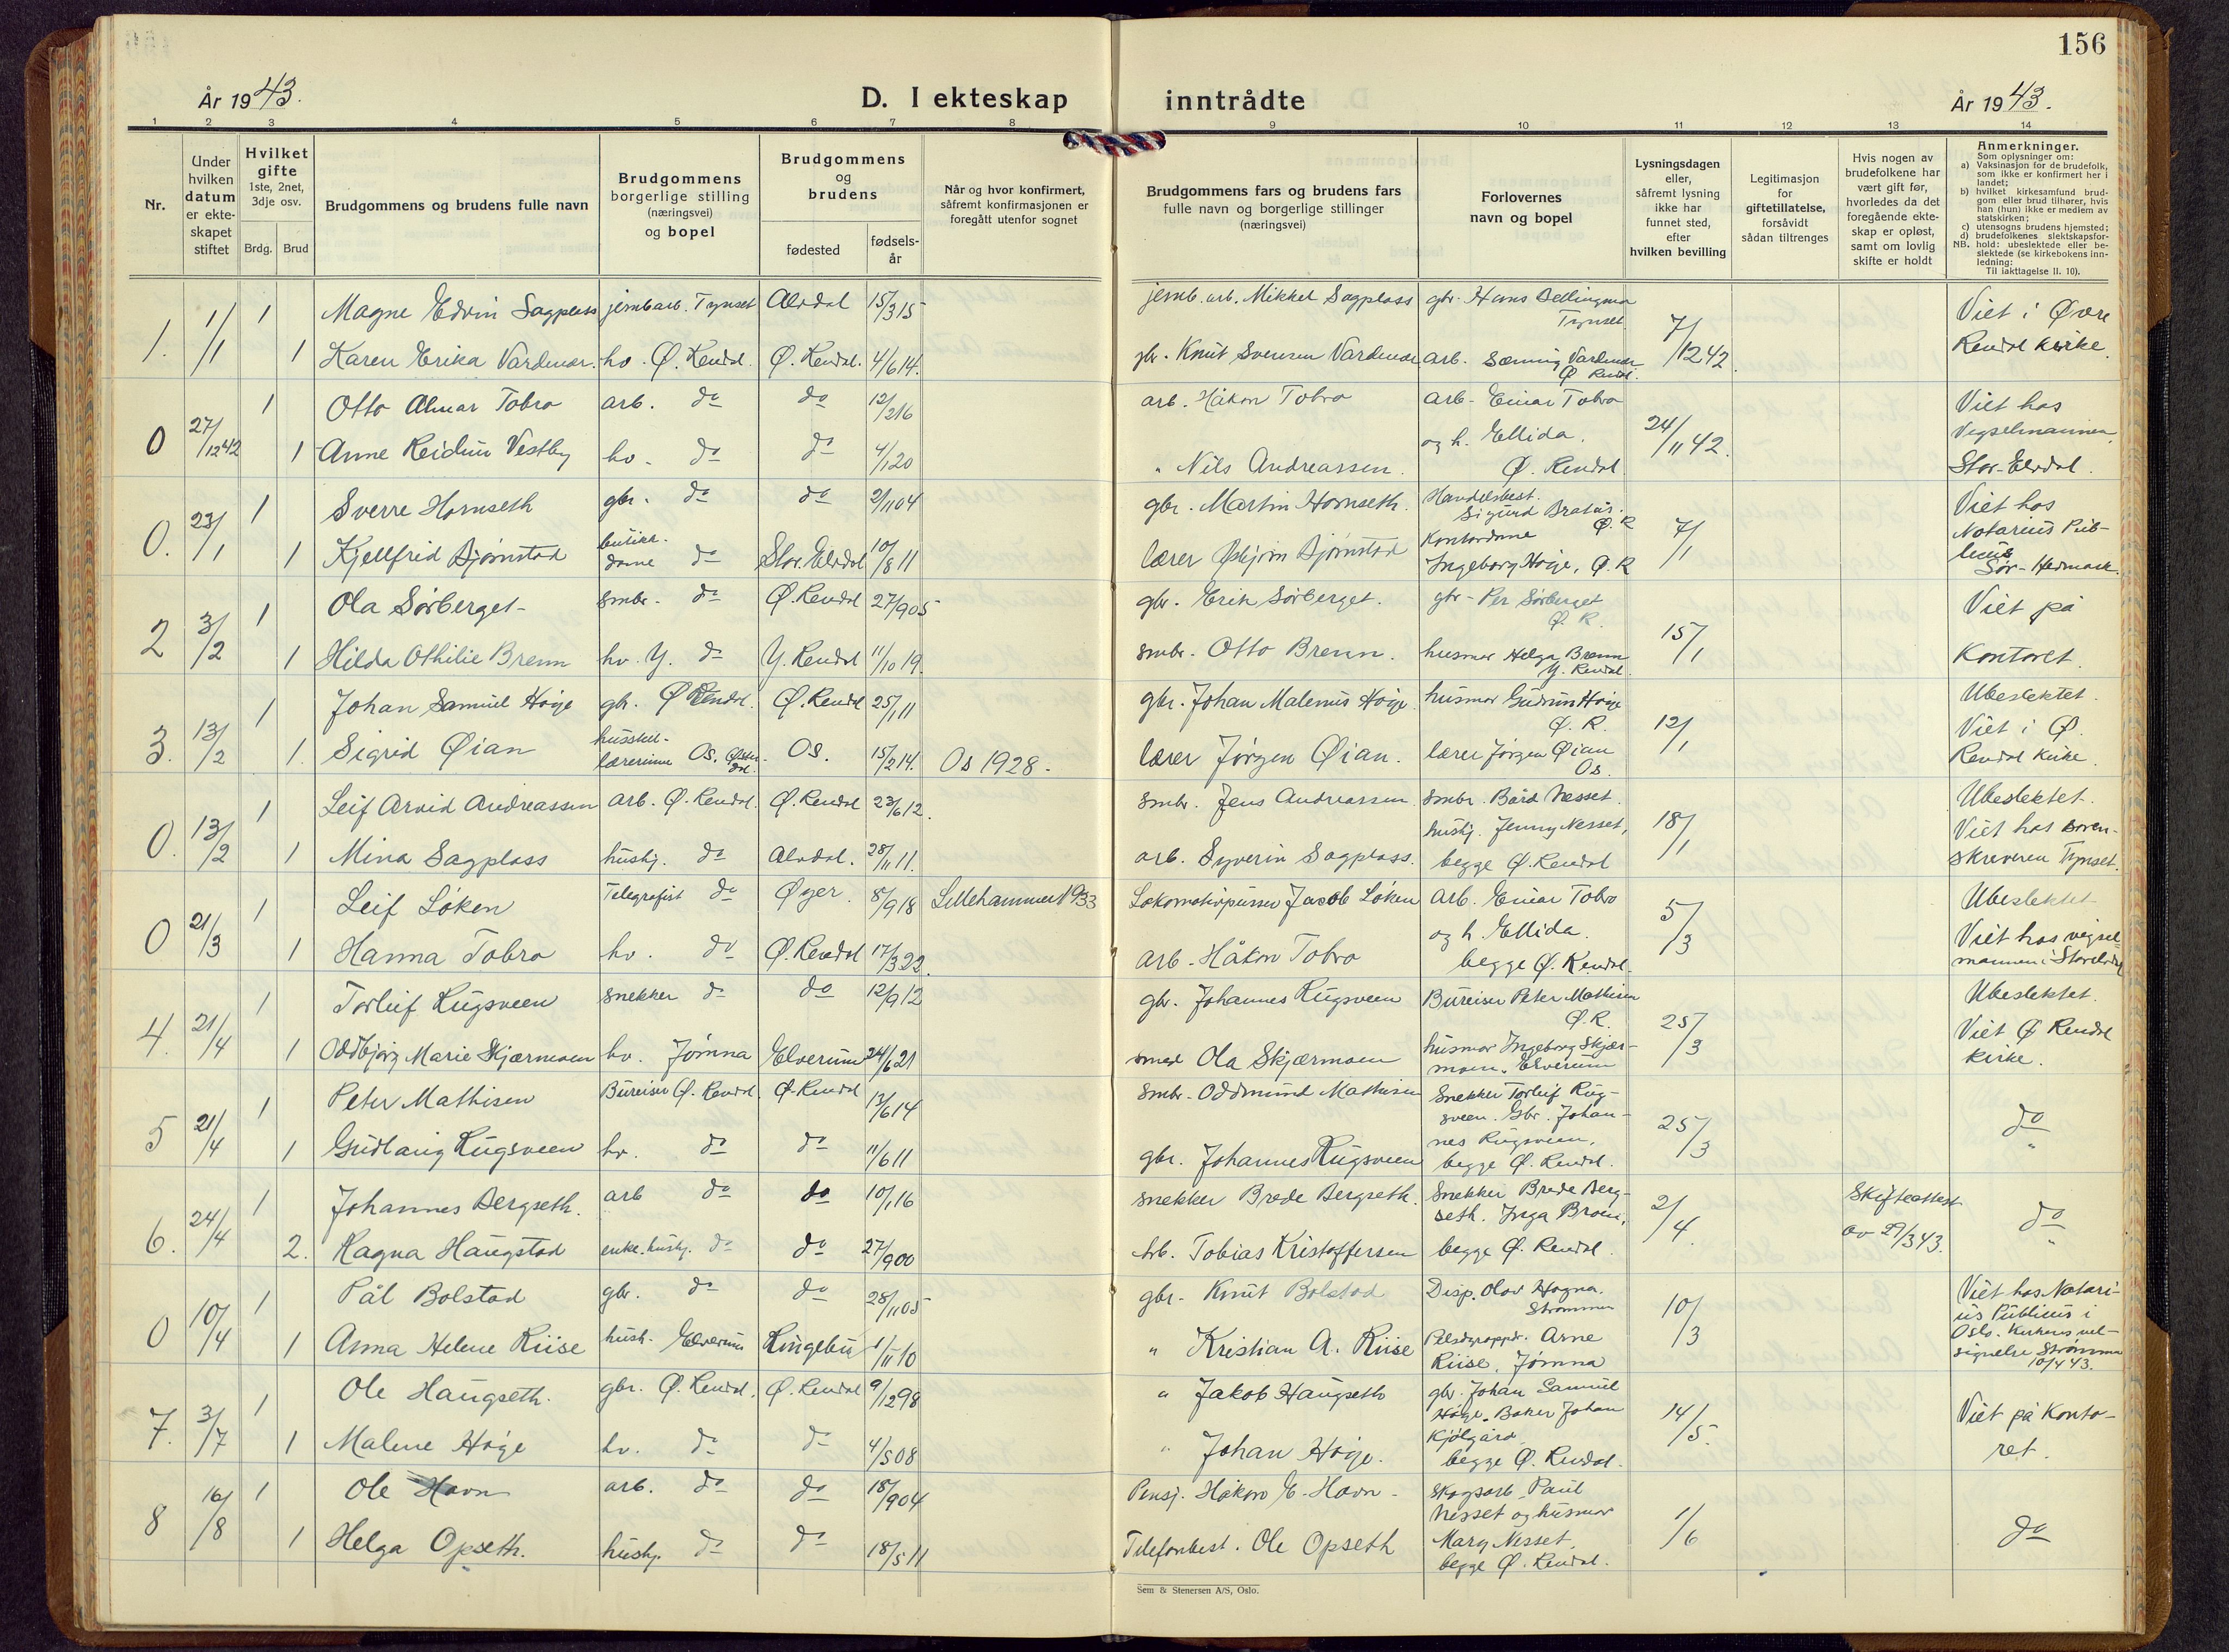 156
År 1943.
D. I ekteskap inntrådte
År 1943.
1 2 3 4 5 6 7 8 9 10 11 12 13 14
Nr.
Under hvilken datum er ekte-skapet stiftet
Hvilket gifte 1ste, 2net, 3dje osv.
Brdg. Brud
Brudgommens og brudens fulle navn
Brudgommens borgerlige stilling (næringsvei) og bopel
Brudgommens og brudens
fødested
fødsels-år
Når og hvor konfirmert, såfremt konfirmasjonen er foregått utenfor sognet
Brudgommens fars og brudens fars fulle navn og borgerlige stillinger (næringsvei)
Forlovernes navn og bopel
Lysningsdagen eller, såfremt lysning ikke har funnet sted, efter hvilken bevilling
Legitimasjon for giftetillatelse, forsåvidt sådan tiltrenges
Hvis nogen av brudefolkene har vært gift før, hvorledes da det foregående ekte-skap er opløst, samt om lovlig skifte er holdt
Anmerkninger.
Som oplysninger om:
a) Vaksinasjon for de brudefolk, som ikke er konfirmert her i landet;
b) hvilket kirkesamfund brud-gom eller brud tilhører, hvis han (hun) ikke er medlem av statskirken;
c) utensogns brudens hjemsted;
d) brudefolkenes slektskapsfor-hold: ubeslektede eller be-slektede (se kirkebokens inn-ledning:
NB. Til iakttagelse II. 10).
1. 1/1 1 Magne Edvin Sagplass jernb.arb. Tynset Alvdal 15/3 15 jernb. arb. Mikkel Sagplass gbr. Hans Bellingmo Tynset. 7/12 42. Viet i Øvre
1 Karen Erika Vardmoar. hv. Ø. Rendal. Ø. Rendal. 4/6 14. gbr. Knut Svensen Vardmoar arb. Vardmoar Ø Rendal. Rendal kirke.
0 27/12 42 1 Otto Almar Tobro arb. do do 12/2 16 arb. Håkon Tobro arb. Einar Tobro 24/11 42. Viet hos
1 Anne Reidun Vestby hv. do do 4/1 20 " Nils Andreassen. og h. Ellida. Ø. Rendal Vigselmannen, Stor-Elvdal.
0. 23/1 1 Sverre Hornseth gbr. do do 2/11 04 gbr. Martin Hornseth. Handelsbest. Sigurd Bratås. Ø. R 7/1 Viet hos
1 Kjellfrid Bjørnstad butikk-dame do Stor. Elvdal 10/8 11 lærer Bjørnstad Kontordame Ingeborg Høije, Ø. R Notarius Pub-licus Sør-Hedmark.
2 3/2 1 Ola Sørberget smbr. do Ø. Rendal 27/9 05 gbr. Erik Sørberget. gbr. Per Sørberget Ø. R. 15/1 Viet på
1 Hilda Othilie Brenn hv. Y. do Y. Rendal 11/10 19. smbr. Otto Brenn. husmor Helga Brenn Y. Rendal. Kontoret.
3. 13/2 1 Johan Samuel Høije gbr. Ø Rendal. Ø. Rendal 25/1 11 gbr. Johan Malenus Høije husmor Gudrun Høije Ø. R. 12/1 Ubeslektet. Viet i Ø.
1. Sigrid Øian husstell-lærerinne Os, Østerdal. Os. 15/2 14. Os 1928. lærer Jørgen Øian. lærer Jørgen Øian Os. Rendal kirke.
0. 13/2 1 Leif Arvid Andreassen arb. Ø. Rendal. Ø. Rendal 23/6 12. smbr. Jens Andreassen smbr. Bård Nesset. 18/1 Ubeslektet.
1 Mina Sagplass hushj. do Alvdal. 28/11 11. arb. Syverin Sagplass. hushj. Jenny Nesset, begge Ø. Rendal Viet hos soren-skriveren Tynset.
0 21/3 1 Leif Løken Telegrafist do Øyer. 8/9 18 Lillehammer 1933 Lokomotivpusser Jacob Løken arb. Einar Tobro 5/3 Ubeslektet
1 Hanna Tobro hv. do Ø. Rendal 17/3 22. arb. Håkon Tobro og h. Ellida. begge Ø. Rendal. Viet hos vigsel-mannen i Storelvdal
4. 21/4 1 Torleif Rugsveen snekker do do 12/9 12 gbr. Johannes Rugsveen Bureiser Peter Mathisen Ø. R. 25/3 Ubeslektet.
1 Oddbjørg Marie Skjærmoen hv. Jømna Elverum 24/6 21 smed Ola Skjærmoen husmor Ingeborg Skjær-moen. Elverum Viet Ø Rendal kirke.
5 21/4 1 Peter Mathisen Bureiser Ø. Rendal. Ø. Rendal 13/6 14 smbr. Oddmund Mathisen Snekker Torleif Rug-sveen. Gbr. Johan- 25/3 do
1 Gudlaug Rugsveen hv. do do 11/6 11 gbr. Johannes Rugsveen nes Rugsveen, begge Ø. Rendal. "
6. 24/4 1 Johannes Bergseth. arb do do 10/1 16 snekker Brede Bergseth. Snekker Brede Berg-seth. Inga Broen, 2/4 Skifteattest do
2. Ragna Haugstad enke. hushj. do do 27/9 00 arb. Tobias Kristoffersen begge Ø. Rendal. av 29/3 43. "
0 10/4 1 Pål Bolstad gbr. do do 28/11 05 gbr. Knut Bolstad Disp. Olav Hagna. Strømmen 10/3 Viet hos Notari-us Publicus i
1 Anna Helene Riise hush. Elverum Ringebu 1/11 10 " Kristian A. Riise Arne Riise, Jømna Oslo. Kirkens vel-signelse Strømmen 10/4 43.
7. 3/7 1 Ole Haugseth. gbr. Ø. Rendal. Ø. Rendal 9/12 98 " Jakob Haugseth gbr. Johan Samuel Høije. Baker Johan 14/5. Viet på Konto-
1 Malene Høije hv. do do 4/5 08 " Johan Høije. Kjølgård begge Ø. Rendal. ret.
8 16/8 1 Ole Havn arb. do do 18/9 04 Pensj. Håkon E. Havn. Skogsarb. Paul Nesset og husmor 1/6 do
1 Helga Opseth. hushj. do do 18/5 11 Telefonbest. Ole Opseth Mary Nesset, begge Ø. Rendal.
Sem & Stenersen A/S, Oslo.